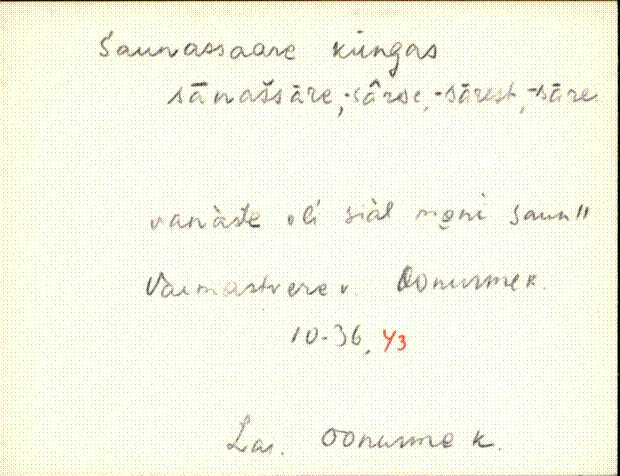 Saunassaare küngas
sānašsāre, -sârse, -sārest, -sāre
vanàste oli siàl mọni saun"
Vaimastvere v. Oonurme k.
10-36, 43
Lai. Oonurme k.